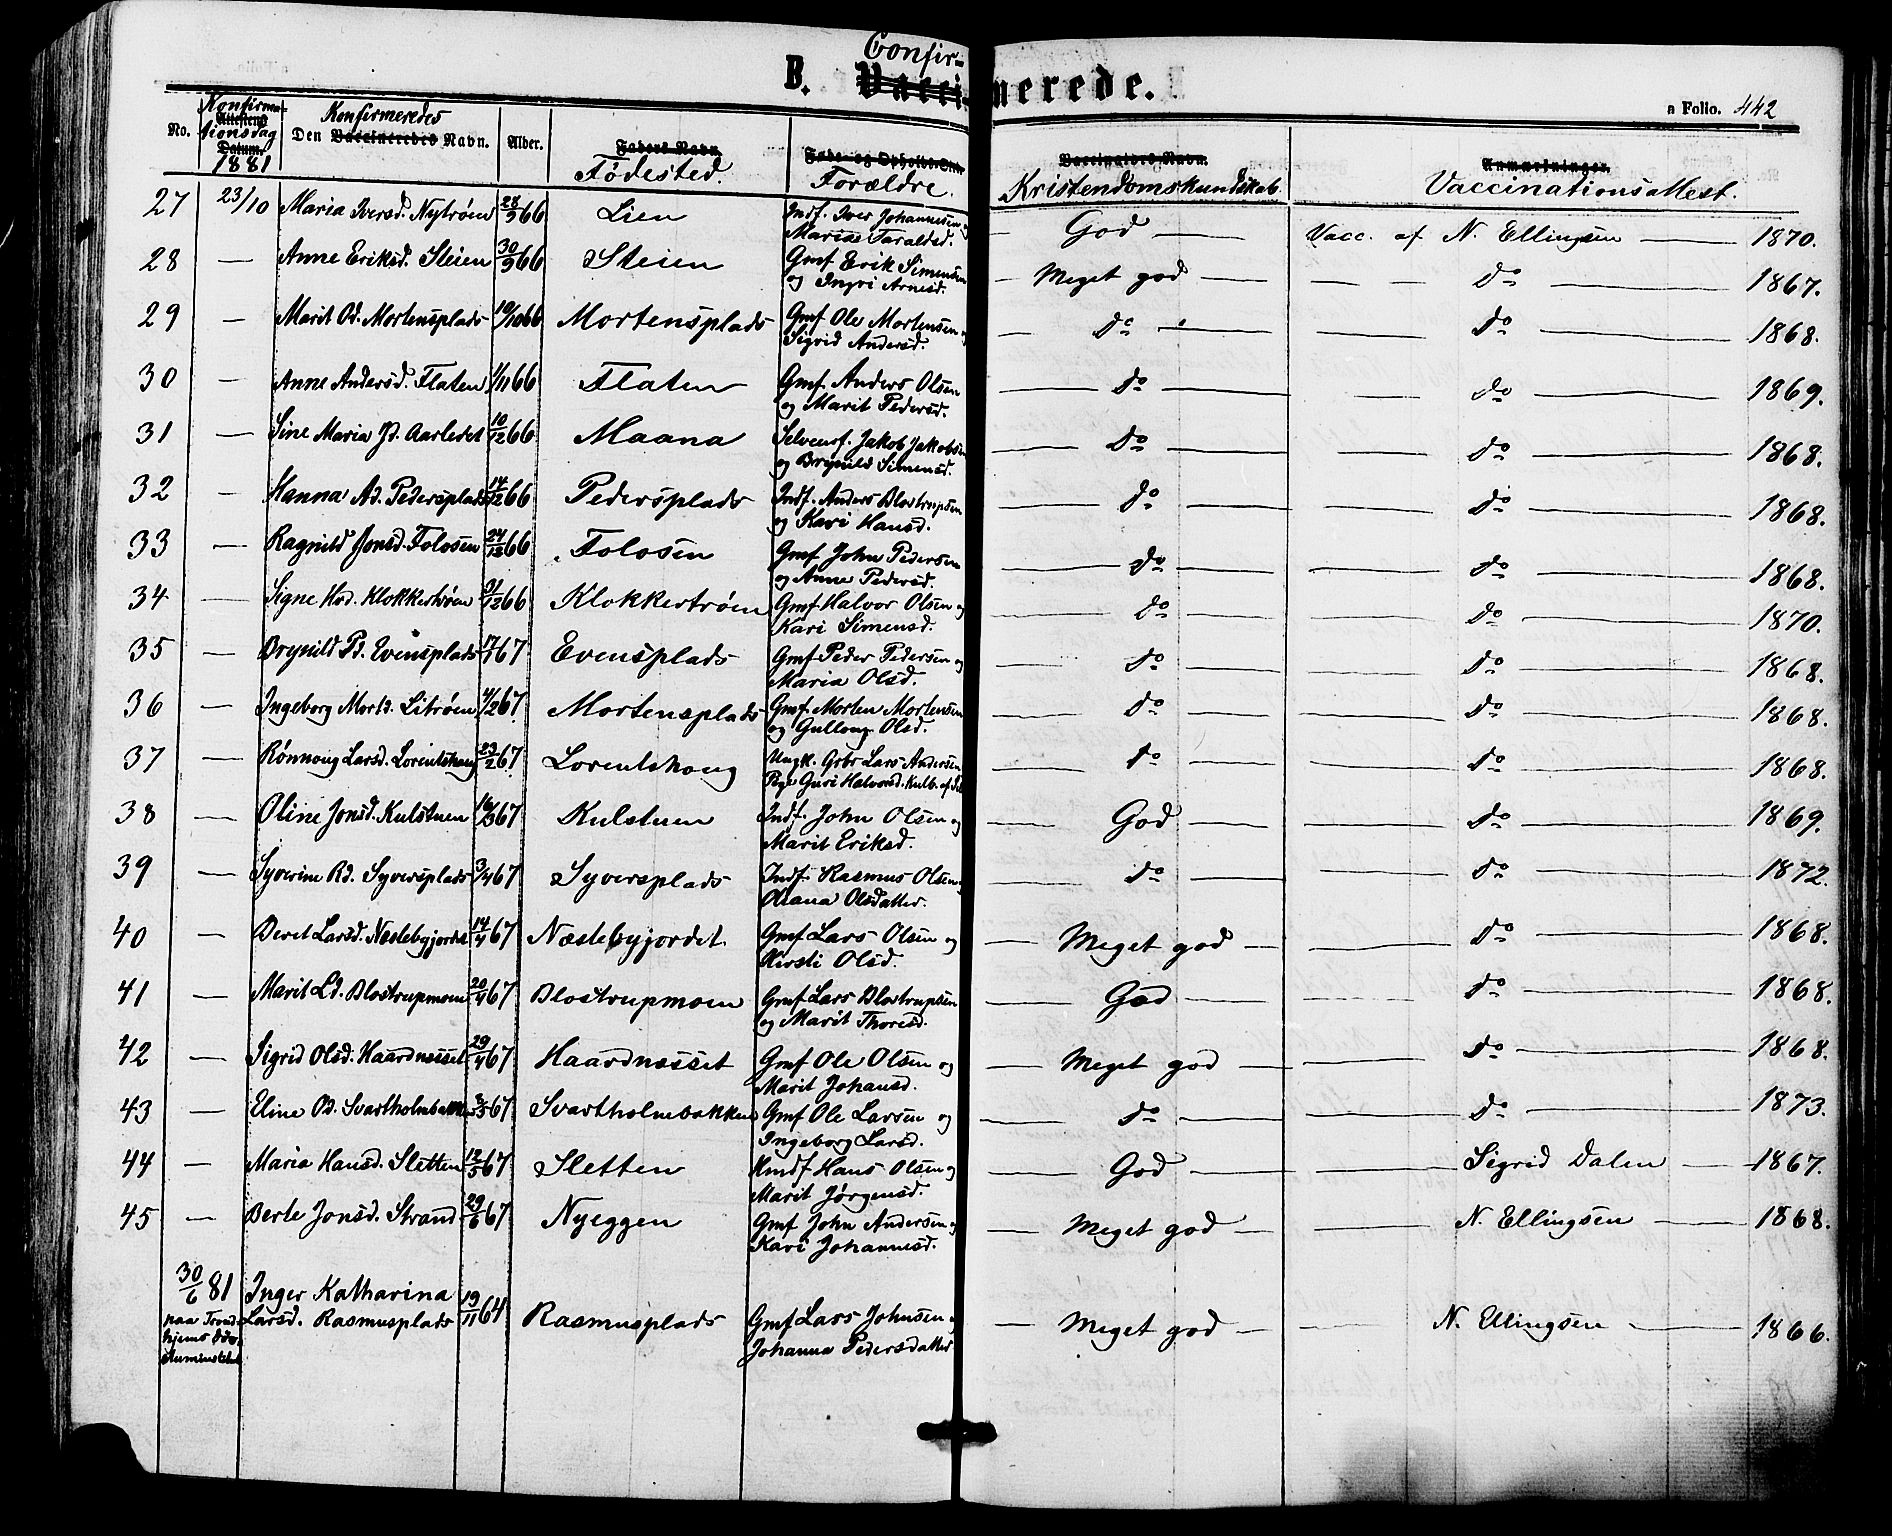 Confir=
B. Vaccinerede.
a Folio. 442
No. Konfirma- Attestens tionsdag Datum. 1881 Konfirmeredes Den Vaccineredes Navn. Alder. Faders Navn. Födested. Føde- og Opholds-Sted Forældre. Vaccinators Navn. Kristendomskundskab. Anmærkninger. Vaccinationsattest.
27 23/10 Maria Iversd. Nytrøen 28/9 66 Lien Indf. Iver Johannesen og — God — Vacc. af N. Ellingsen — 1870.
Maria Taraldsd.
28 — Anne Eriksd. Steien 30/9 66 Steien Gmf Erik Simensen — Meget god — — — Do — 1867.
og Ingri Arnesd.
29 — Marit Od. Mortensplads 10/10 66 Mortensplads Gmf Ole Mortensen og — Do — — Do — 1868.
Sigrid Andersd.
30 — Anne Andersd. Flaten 1/11 66 Flaten Gmf. Anders Olsen — Do — — Do — 1869.
og Marit Pedersd.
31 — Sine Maria Jd. Aarletet 10/12 66 Maana Selveierf. Jakob Jakobsen — Do — — Do — 1868.
og Brynild Simensd.
32 — Hanna Ad. Pedersplads 14/12 66 Pedersplads Indf. Anders Blostrupsen — Do — — Do — 1868.
og Kari Hansd.
33 — Ragnild Jonsd. Folosen 24/12 66 Folosen Gmf John Pedersen — Do — — Do — 1868.
og Anne Pedersd.
34 — Signe Hd. Klokkertrøen 31/12 66 Klokkertrøen Gmf. Halvor Olsen og — Do — — Do — 1870.
Kari Simensd.
35 — Brynild Pd. Evensplads 17/1 67 Evensplads Gmf Peder Pedersen og — Do — — Do — 1868.
Maria Olsd.
36 — Ingeborg Mortd. Litrøen 4/2 67. Mortensplads Gmf. Morten Mortensen — Do — — Do — 1868.
og Gullong Olsd.
37 — Rønnoug Larsd. Lorentshoug 23/2 67. Lorentshoug Ungk. Grbr Lars Andersen — Do — — Do — 1868.
Pige Guri Halvorsd.
38 — Oline Jonsd. Kulstuen 16/3 67 Kulstuen Indf. John Olsen og — God — — Do — 1869.
Marit Eriksd.
39 — Syverine Rd. Syversplads 3/4 67 Syversplads Indf. Rasmus Olsen — Do — — Do — 1872.
Olsdatter.
40 — Beret Larsd. Næstebyjordet 14/4 67 Næstebyjordet. Gmf Lars Olsen og — Meget god — — Do — 1868.
Kirsti Olsd.
41 — Marit Ld. Blostrupmoen 20/4 67 Blostrupmoen Gmf Lars Blostrupsen — God — — Do — 1868.
og Marit Thoresd.
42 — Sigrid Olsd. Haardnæsset 29/4 67 Haardnæsset Gmf Ole Olsen og — Meget god — — Do — 1868.
Marit Johansd.
43 — Eline Od. Svartholmbakken 67 Svartholmbakken Gmf Ole Larsen og — Do — — Do — 1873.
Ingeborg Larsd.
44 — Maria Hansd. Sletten 12/5 67 Sletten Hmdf Hans Olsen og — God — — Sigrid Dalen — 1867.
Marit Jørgensd.
45 — Berte Jonsd. Strand 29/6 67 Nyeggen Gmf John Andersen og — Meget god — — N. Ellingsen — 1868.
Kari Johannesd.
30/6 81 Inger Katharina
paa Trond- Larsd. Rasmusplads 19/11 64 Rasmusplads Gmf Lars Johnsen og — Meget god — — N. Ellingsen — 1866.
hjems Johanna Pedersdatter